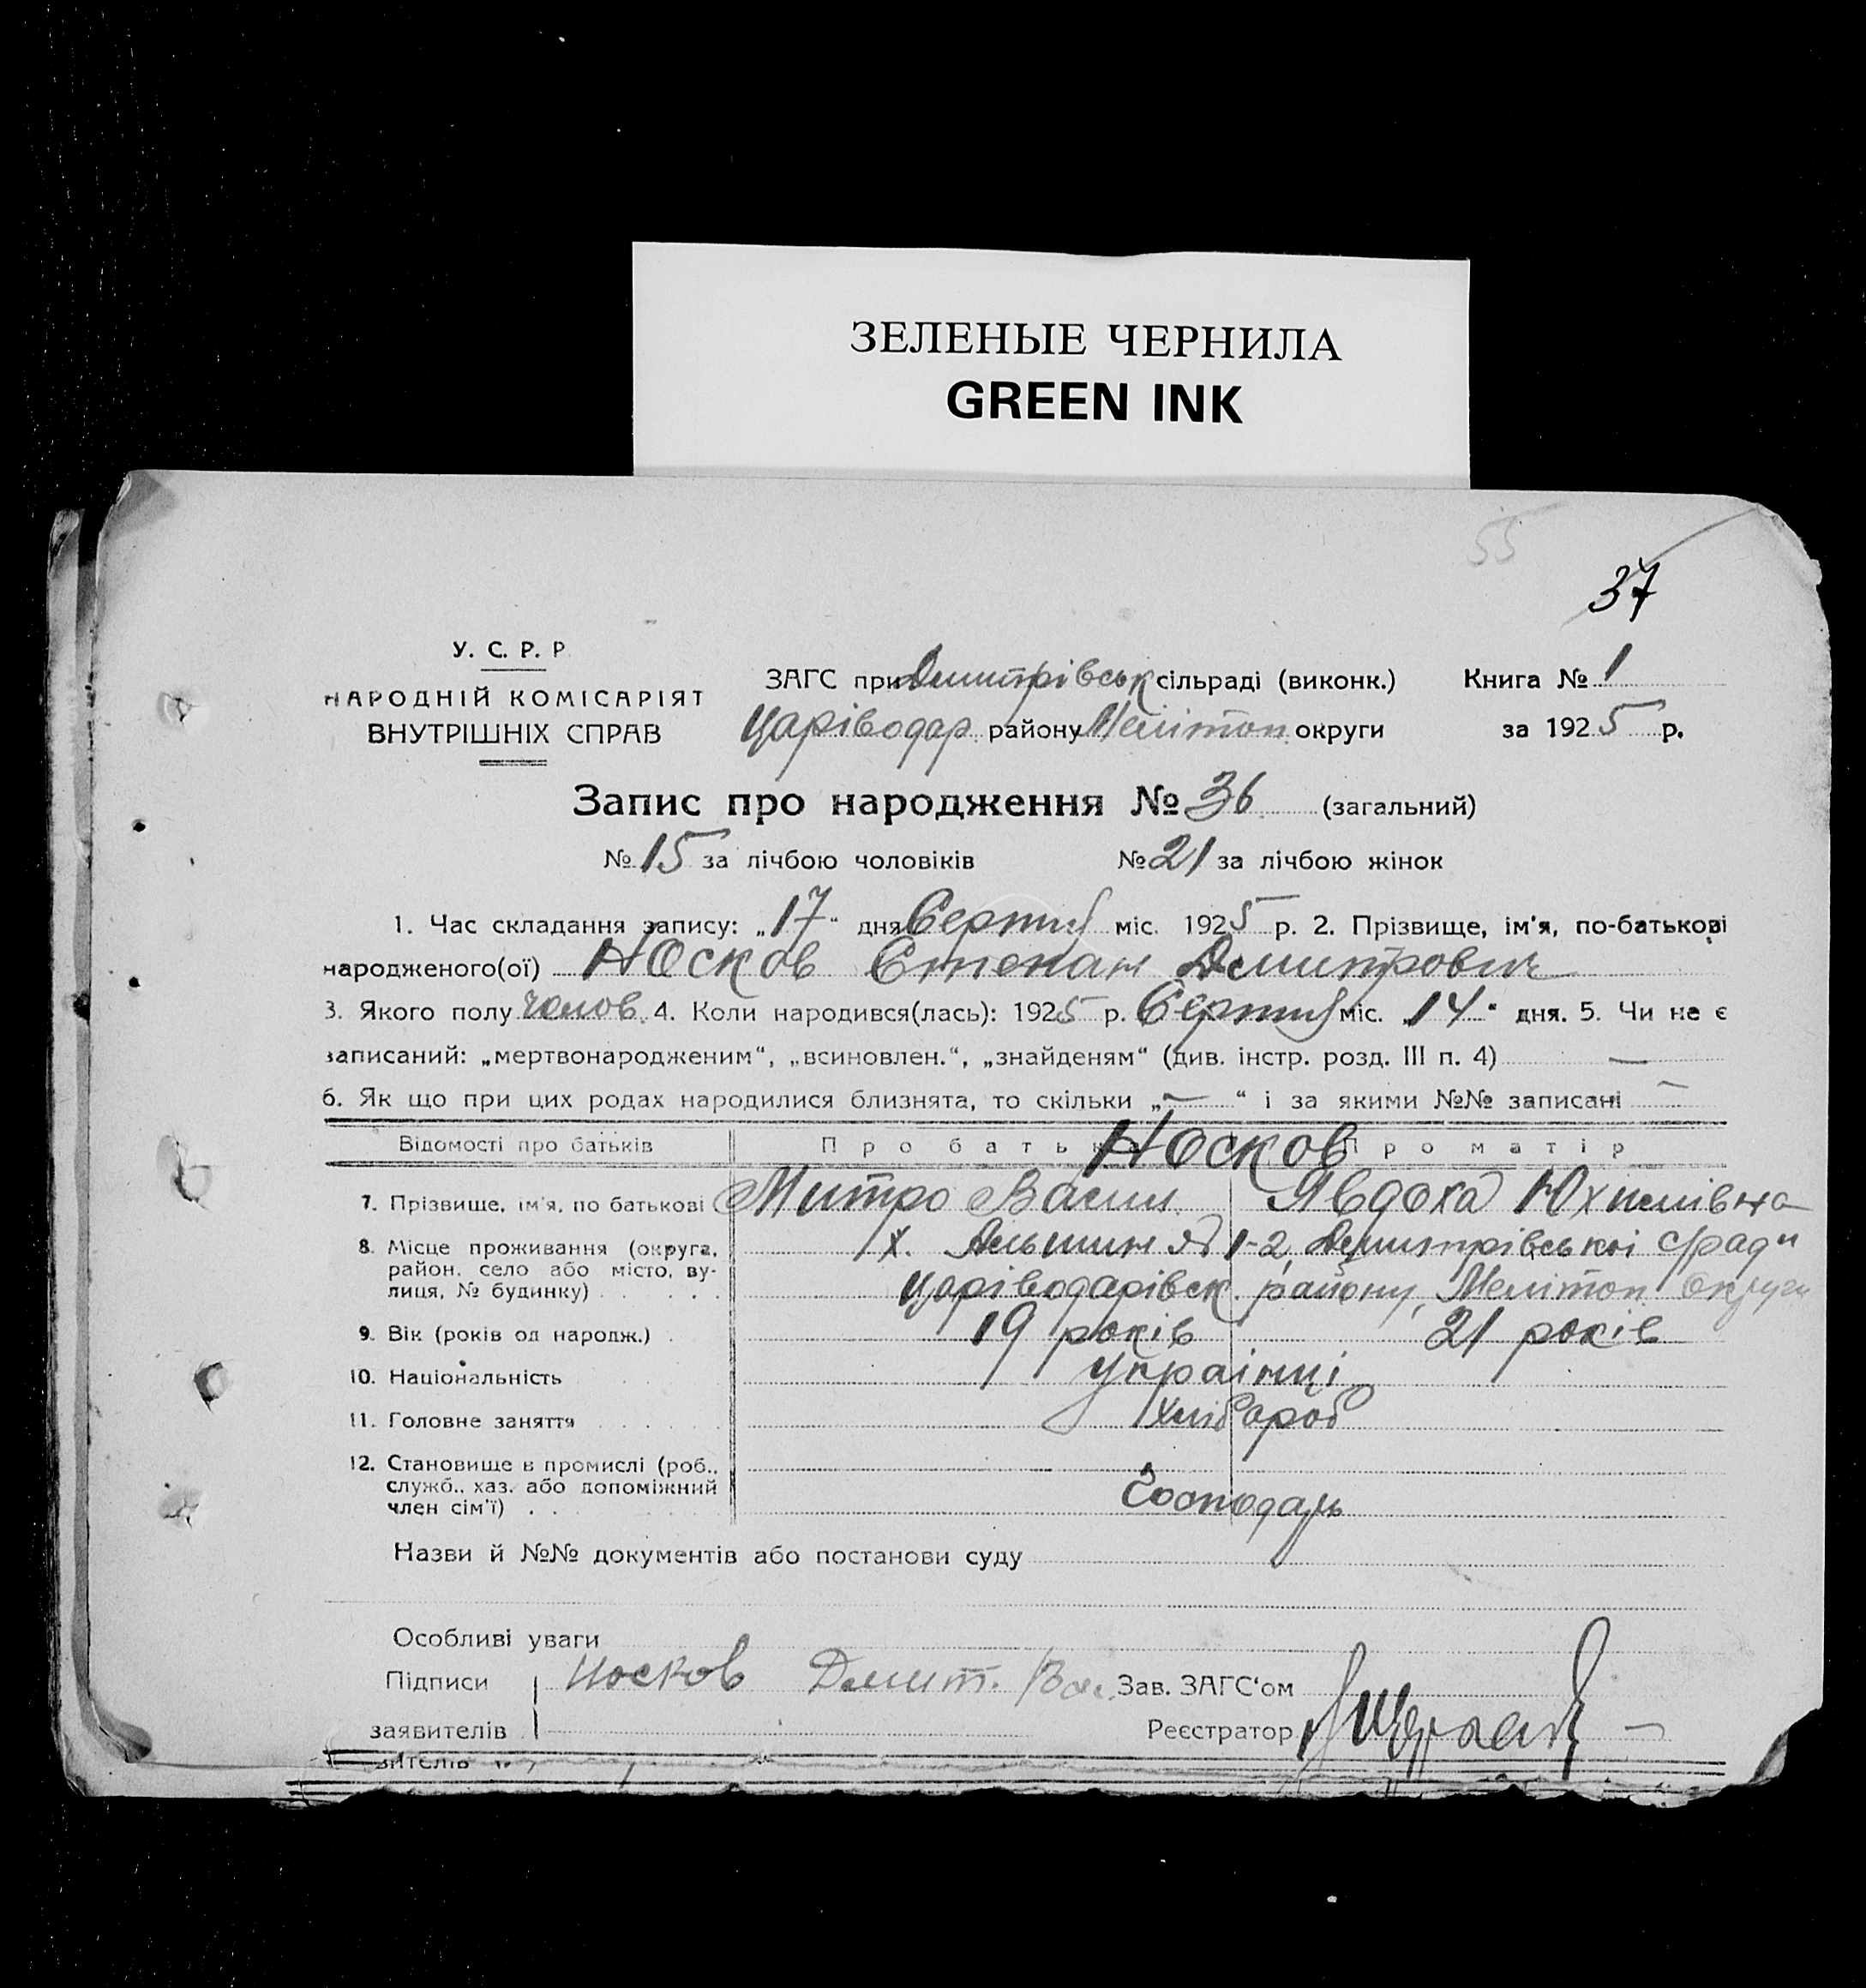 ЗЕЛЕНЫЕ ЧЕРНИЛА
GREEN INK
55
37
У. С. Р. Р.
НАРОДНІЙ КОМІСАРІЯТ
ВНУТРІШНІХ СПРАВ
ЗАГС при Дмитрівськ сільраді (виконк.) Книга № 1
Царіводар. району Мелітоп. округи за 1925 р.
Запис про народження № 36 (загальний)
№ 15 за лічбою чоловіків № 21 за лічбою жінок
1. Час складання запису: „17“ дня Серпня міс. 1925 р. 2. Прізвище, ім'я, по-батькові
народженого(ої) Носков Степан Дмитрович
3. Якого полу чолов. 4. Коли народився(лась): 1925 р. Серпня міс. „14“ дня. 5. Чи не є
записаний: „мертвонародженим“, „всиновлен.“, „знайденям“ (див. інстр. розд. III п. 4) —
6. Як що при цих родах народилися близнята, то скільки „—“ і за якими №№ записані —
Відомості про батьків Про батька Носков Про матір
7. Прізвище, ім'я, по батькові Митро Васил. Явдоха Юхимівна
8. Місце проживання (округа, район, село або місто, вулиця, № будинку) х. Дмитрівської с/ради
Царіводарівск. району, Мелітоп. округи
9. Вік (років од народж.) 19 років 21 років
10. Національність українці
11. Головне заняття хлібороб
12. Становище в промислі (роб., служб., хаз. або допоміжний член сім'ї) Господарь
Назви й №№ документів або постанови суду
Особливі уваги
Підписи Носков Дмит. Вас. Зав. ЗАГС‘ом
заявителів Реєстратор
вителів